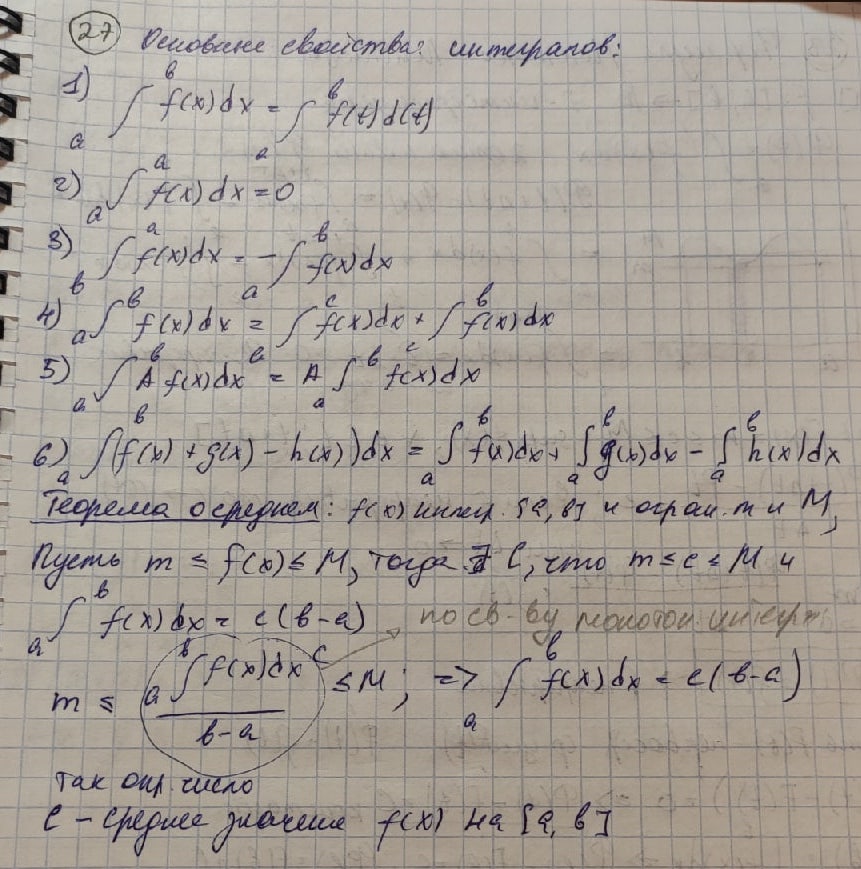 27 Основные свойства интегралов:
1) ₐ∫ᵇ f(x)dx = ₐ∫ᵇ f(t)d(t)
2) ₐ∫ᵃ f(x)dx = 0
3) ᵦ∫ᵃ f(x)dx = - ₐ∫ᵇ f(x)dx
4) ₐ∫ᵇ f(x)dx = ₐ∫ᶜ f(x)dx + c∫ᵇ f(x)dx
5) ₐ∫ᵇ A f(x)dx = A ₐ∫ᵇ f(x)dx
6) ₐ∫ᵇ (f(x) + g(x) - h(x))dx = ₐ∫ᵇ f(x)dx + ₐ∫ᵇ g(x)dx - ₐ∫ᵇ h(x)dx
Теорема о среднем: f(x) интегр. [a, b] и огран. m и M,
Пусть m ≤ f(x) ≤ M, тогда ∃ C, что m ≤ c ≤ M и
ₐ∫ᵇ f(x)dx = c(b-a) по св-ву монотон. интегр.
m ≤ (ₐ∫ᵇ f(x)dx)/(b-a) c ≤ M; => ₐ∫ᵇ f(x)dx = c(b-a)
так опр. число
C - среднее значение f(x) на [a, b]